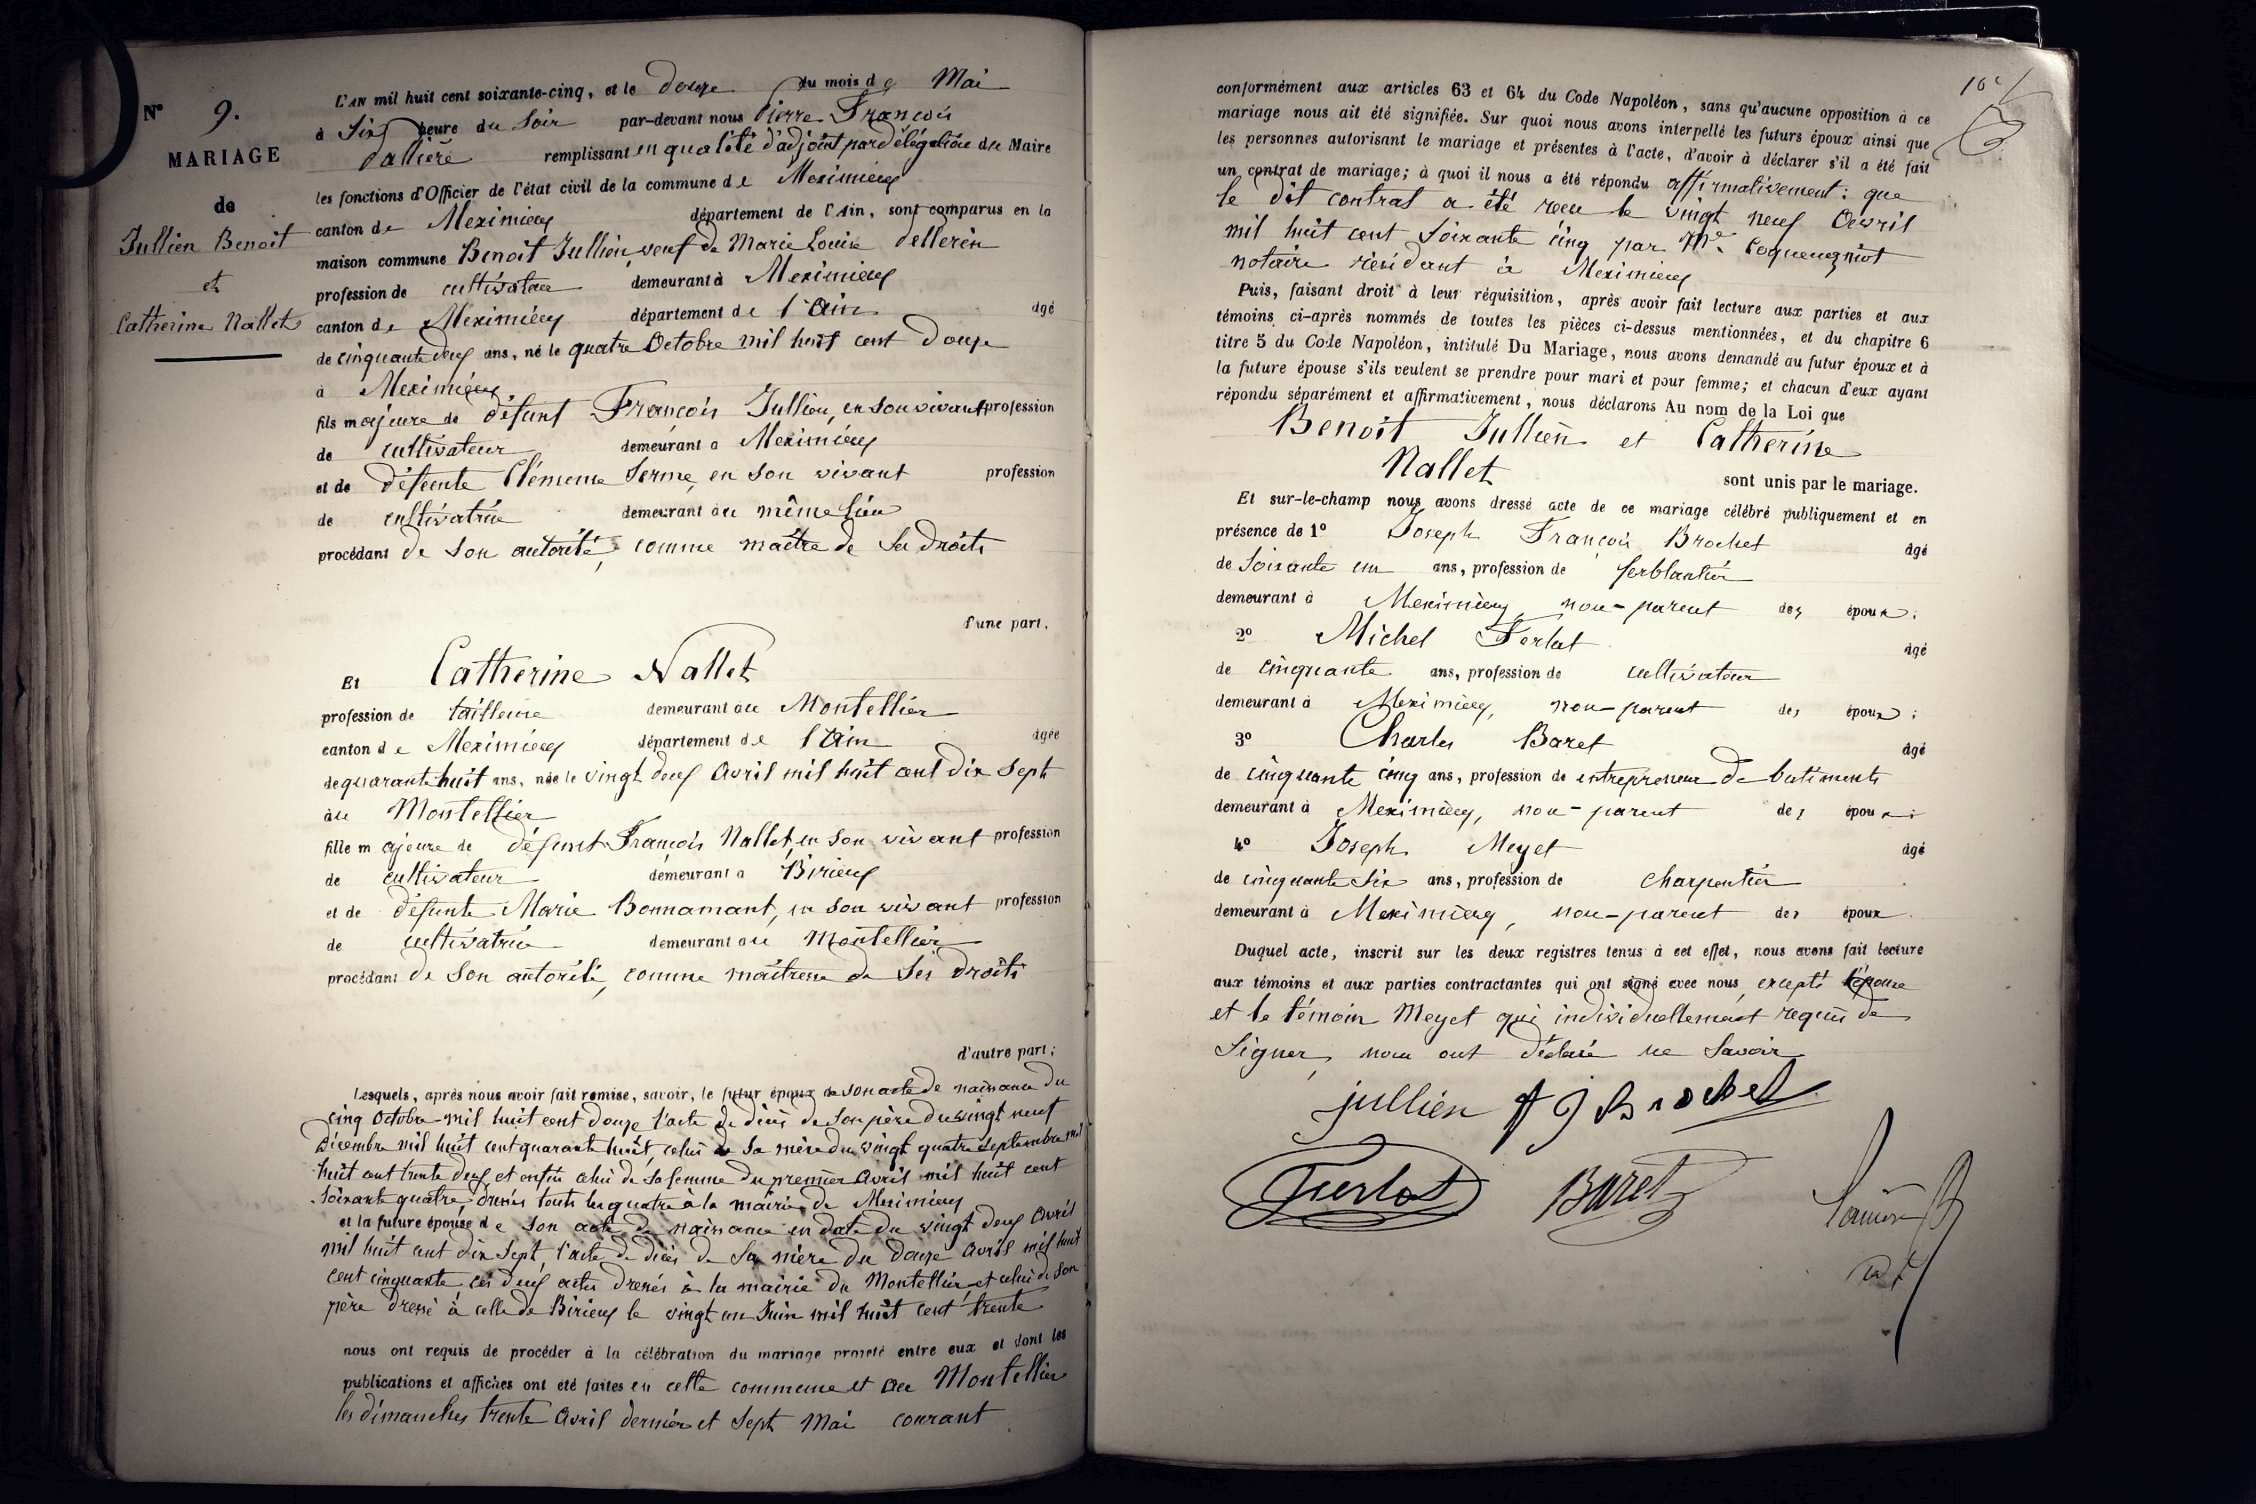 N° 9.
MARIAGE
de
Jullien Benoit
et
Catherine Nallet
L'AN mil huit cent soixante-cinq, et le douze du mois de Mai
à Six heure du Soir par-devant nous Pierre François
Dallière remplissant en qualité d'adjoint par délégation du Maire
les fonctions d'Officier de l'état civil de la commune de Meximieux
canton de Meximieux département de l'Ain, sont comparus en la
maison commune Benoit Jullien, veuf de Marie Louise Pellerin
profession de cultivateur demeurant à Meximieux
canton de Meximieux département de l'Ain âgé
de cinquante deux ans, né le quatre Octobre mil huit cent Douze
à Meximieux
fils majeure de défunt François Jullien, en son vivant profession
de cultivateur demeurant à Meximieux
et de défunte Clémence Serme, en son vivant profession
de cultivatrice demeurant au même lieu
procédant de son autorité, comme maître de ses droits
d'une part.
Et Catherine Nallet
profession de tailleuse demeurant au Montellier
canton de Meximieux département de l'Ain âgée
de quarante huit ans, née le vingt deux Avril mil huit cent dix Sept
au Montellier
fille majeure de défunt François Nallet, en son vivant profession
de cultivateur demeurant à Birieux
et de défunte Marie Bonnamant, en son vivant profession
de cultivatrice demeurant au Montellier
procédant de son autorité, comme maîtresse de ses droits
d'autre part;
Lesquels, après nous avoir fait remise, savoir, le futur époux de son acte de naissance du
cinq Octobre mil huit cent douze l'acte de décès de son père du vingt neuf
Décembre mil huit cent quarante huit, celui de sa mère du vingt quatre Septembre mil
huit cent trente deux et enfin celui de sa femme du premier Avril mil huit cent
soixante quatre, dressés touts les quatre à la mairie de Meximieux
et la future épouse de son acte de naissance en date du vingt deux Avril
mil huit cent dix Sept, l'acte de décès de sa mère du douze Avril mil huit
cent cinquante ces deux actes dressés à la mairie du Montellier, et celui de son
père dressé à celle de Birieux le vingt un Juin mil huit cent trente
nous ont requis de procéder à la célébration du mariage projeté entre eux et dont les
publications et affiches ont été faites en cette commune et au Montellier
les dimanches trente Avril dernier et Sept Mai courant
conformément aux articles 63 et 64 du Code Napoléon, sans qu'aucune opposition à ce
mariage nous ait été signifiée. Sur quoi nous avons interpellé les futurs époux ainsi que
les personnes autorisant le mariage et présentes à l'acte, d'avoir à déclarer s'il a été fait
un contrat de mariage; à quoi il nous a été répondu affirmativement: que
le dit contrat a été reçu le vingt neuf Avril
mil huit cent Soixante cinq par Me
notaire résidant à Meximieux
Puis, faisant droit à leur réquisition, après avoir fait lecture aux parties et aux
témoins ci-après nommés de toutes les pièces ci-dessus mentionnées, et du chapitre 6
titre 5 du Code Napoléon, intitulé Du Mariage, nous avons demandé au futur époux et à
la future épouse s'ils veulent se prendre pour mari et pour femme; et chacun d'eux ayant
répondu séparément et affirmativement, nous déclarons Au nom de la Loi que
Benoit Jullien et Catherine
Nallet sont unis par le mariage.
Et sur-le-champ nous avons dressé acte de ce mariage célébré publiquement et en
présence de 1° Joseph François Brochet âgé
de Soixante un ans, profession de ferblantier
demeurant à Meximieux, non-parent des époux;
2° Michel Ferlat âgé
de cinquante ans, profession de cultivateur
demeurant à Meximieux, non-parent des époux;
3° Charles Baret âgé
de cinquante cinq ans, profession de entrepreneur de batiments
demeurant à Meximieux, non-parent des époux;
4° Joseph Meyet âgé
de cinquante Six ans, profession de Charpentier
demeurant à Meximieux, non-parent des époux
Duquel acte, inscrit sur les deux registres tenus à cet effet, nous avons fait lecture
aux témoins et aux parties contractantes qui ont signé avec nous, excepté l'épouse
et le témoin Meyet qui individuellement requis de
Signer, nous ont déclaré ne Savoir
jullien f j Brochet
Ferlat Baret